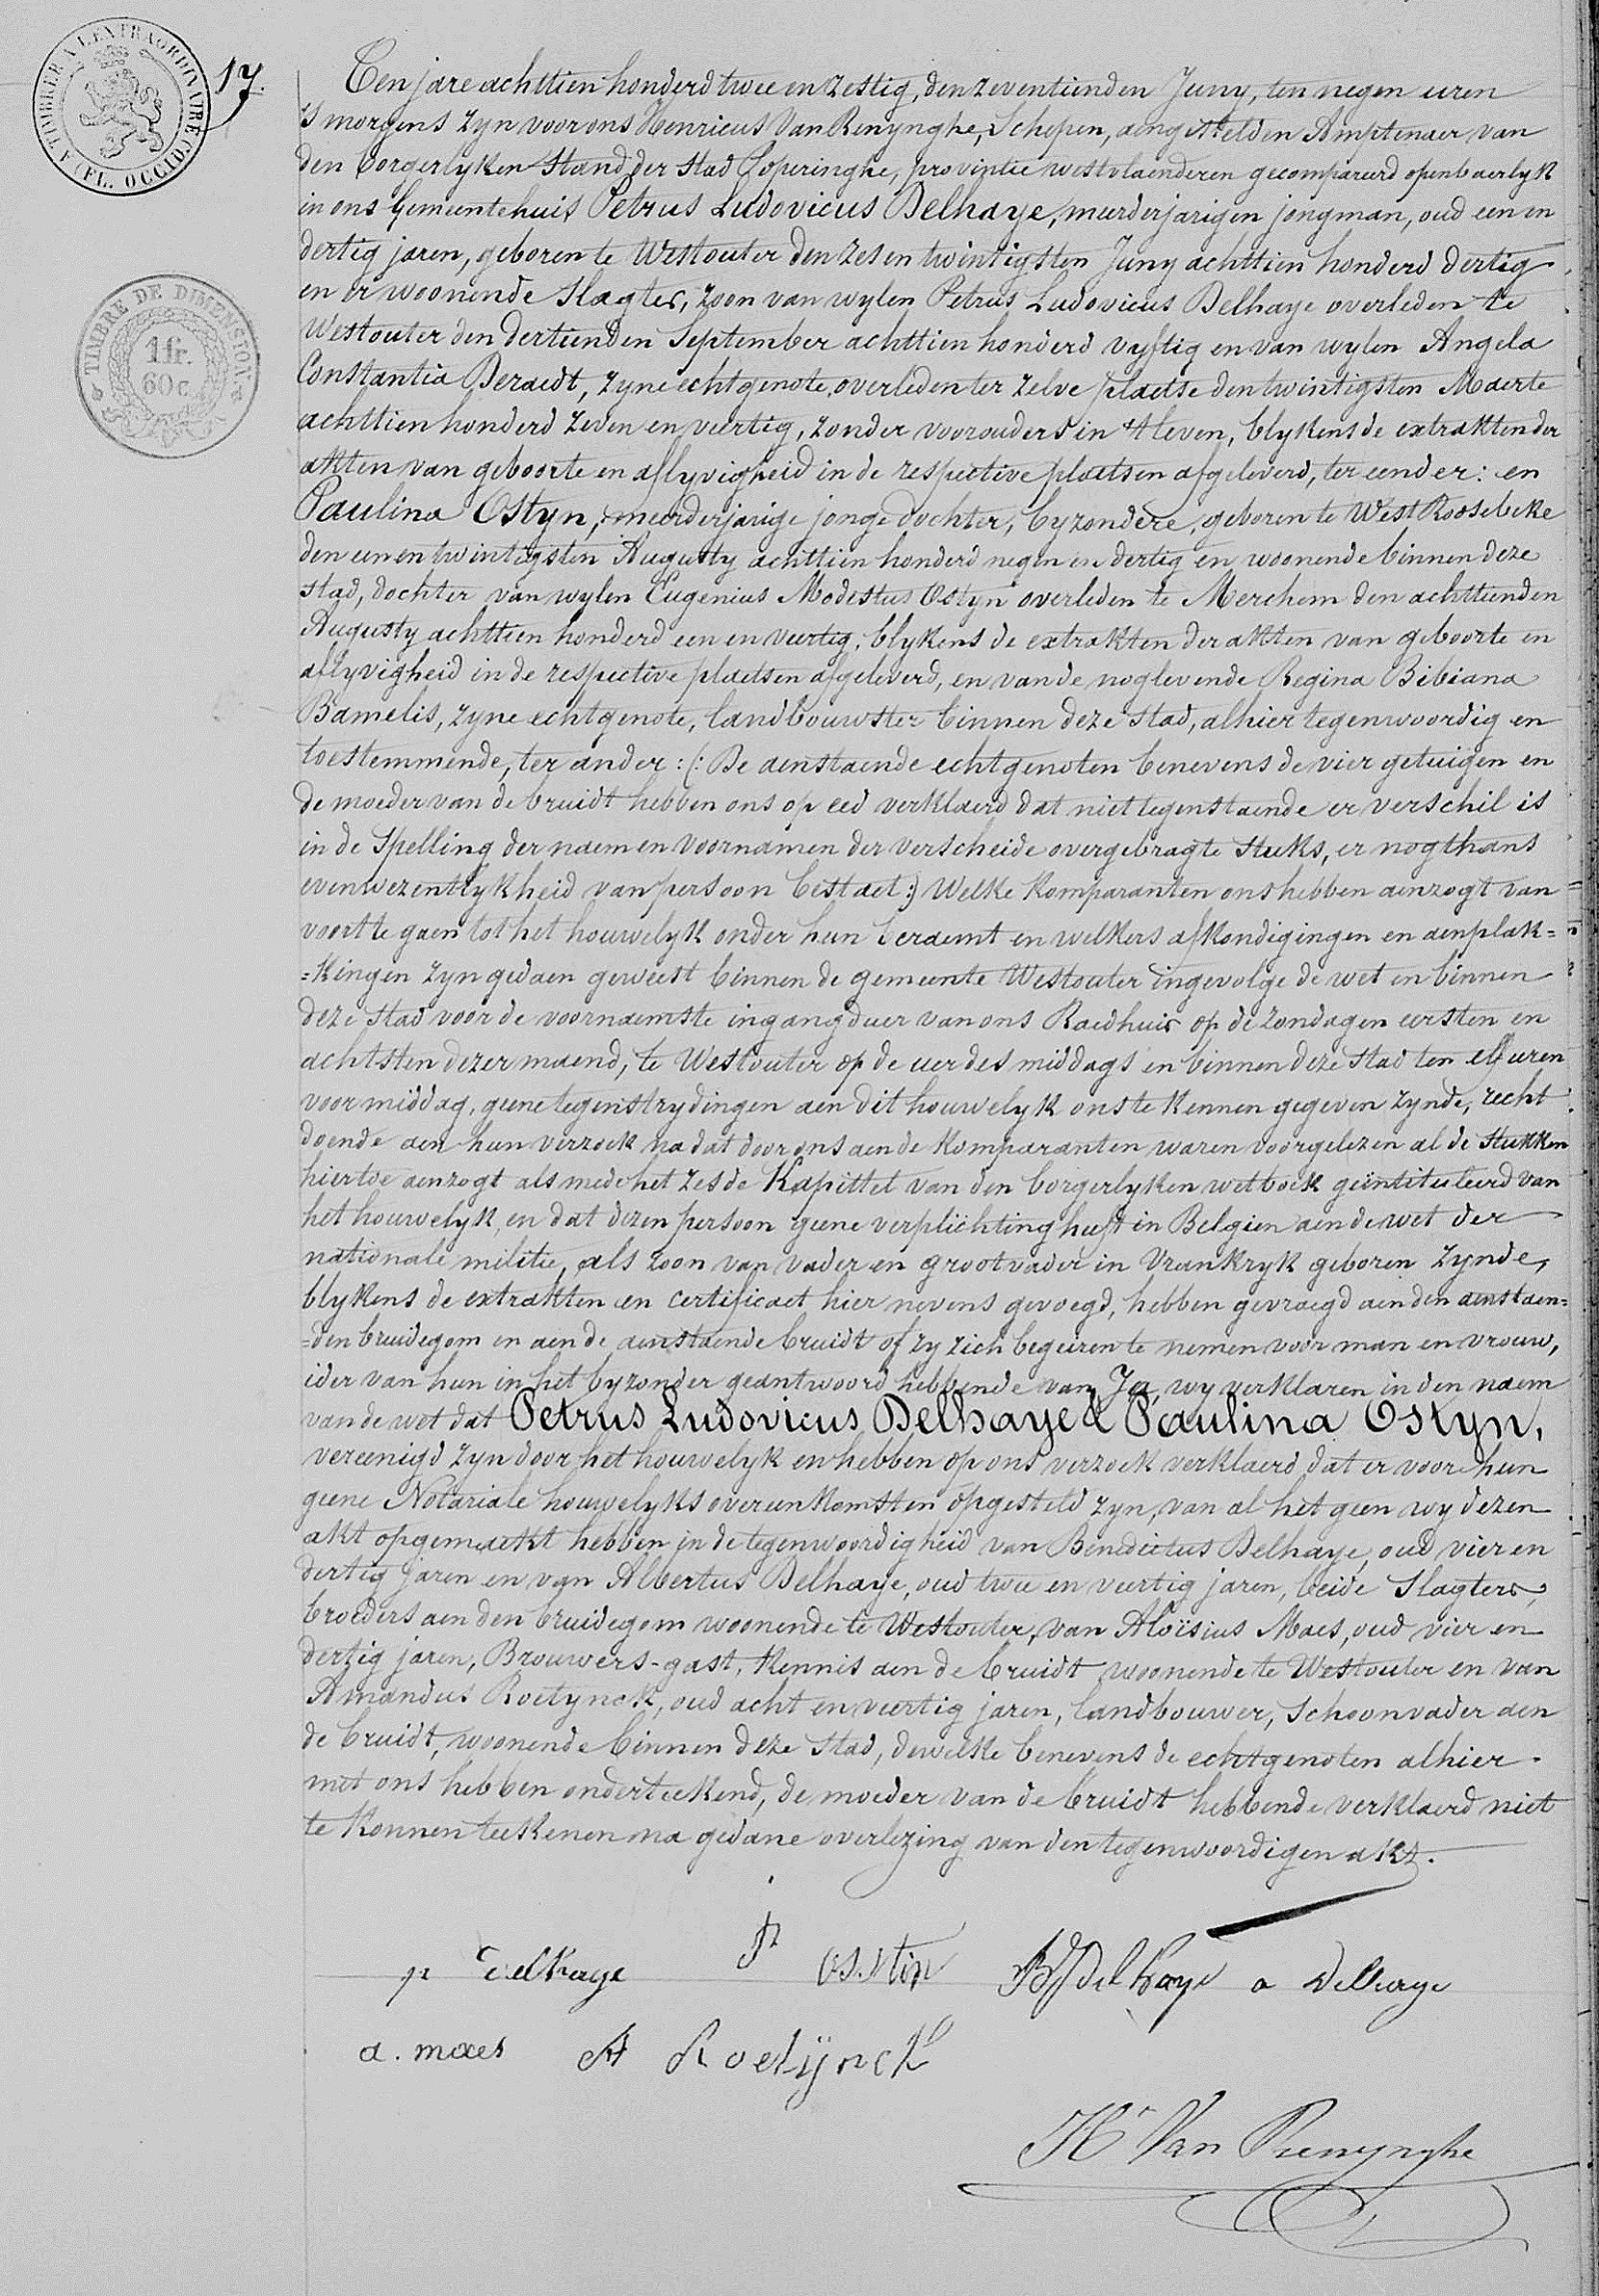 A TIMBRER A L'EXTRAORDINAIRE (COTE)
(FL. OCCID.)
17.
TIMBRE DE DIMENSION.
1 fr.
60 c
Ten jare achttien honderd twee en zestig, den zeventienden Juny, ten negen uren
's morgens zyn voor ons Henricus Van Renynghe, Schepen, aengestelden Amptenaer van
den borgerlyken Stand der Stad Poperinghe, provintie westvlaenderen gecompareerd openbaerlyk
in ons Gemeentehuis Petrus Ludovicus Delhaye, meerderjarigen jongman, oud een en
dertig jaren, geboren te Westouter den zes en twintigsten Juny achttien honderd dertig
en er woonende Slagter, zoon van wylen Petrus Ludovicus Delhaye overleden te
Westouter den dertienden September achttien honderd vyftig en van wylen Angela
Constantia Deraedt, zyne echtgenote, overleden ter zelve plaetse den twintigsten Maerte
achttien honderd zeven en veertig, zonder voorouders in 't leven, blykens de extrakten der
akten van geboorte en aflyvigheid in de respective plaetsen afgeleverd, ter eender: en
Paulina Ostyn, meerderjarige jonge dochter, byzondere, geboren te West Roosebeke
den een en twintigsten Augusty achttien honderd negen en dertig en woonende binnen deze
stad, dochter van wylen Eugenius Modestus Ostyn overleden te Merchem den achttienden
Augusty achttien honderd een en veertig, blykens de extrakten der akten van geboorte en
aflyvigheid in de respective plaetsen afgeleverd, en van de noglevende Regina Bibiana
Bamelis, zyne echtgenote, landbouwster binnen deze stad, alhier tegenwoordig en
toestemmende, ter ander: (: De aenstaende echtgenoten benevens de vier getuigen en
de moeder van de bruidt hebben ons op eed verklaerd dat niettegenstaende er verschil is
in de Spelling der naemen voornamen der verscheide overgebragte stuks, er nogthans
evenwezentlykheid van persoon bestaet:) Welke komparanten ons hebben aenzogt van
voort te gaen tot het houwelyk onder hun beraemt en welkers afkondigingen en aenplak=
=kingen zyn gedaen geweest binnen de gemeente Westouter ingevolge de wet en binnen
deze stad voor de voornaemste ingangduer van ons Raedhuis op de zondagen eersten en
achtsten dezer maend, te Westouter op de uer des middags en binnen deze stad ten elf uren
voormiddag, geene tegenstrydingen aen dit houwelyk ons te kennen gegeven zynde, recht
doende aen hun verzoek na dat door ons aen de komparanten waren voorgelezen al de stukken
hiertoe aenzogt als mede het zesde Kapittel van den borgerlyken wetboek geïntituleerd van
het houwelyk, en dat dezen persoon geene verplichting heeft in Belgien aen de wet der
nationale militie, als zoon van vader en grootvader in Vrankryk geboren zynde,
blykens de extrakten en certificaet hier nevens gevoegd, hebben gevraegd aen den aenstaen=
=den bruidegom en aen de aenstaende bruidt of zy zich begeiren te nemen voor man en vrouw,
ider van hun in het byzonder geantwoord hebbende van Ja, wy verklaren in den naem
van de wet dat Petrus Ludovicus Delhaye & Paulina Ostyn,
vereenigd zyn door het houwelyk en hebben op ons verzoek verklaerd dat er voor hun
geene Notariale houwelyks overeenkomsten opgesteld zyn, van al het geen wy dezen
akt opgemaekt hebben in de tegenwoordigheid van Benedictus Delhaye, oud vier en
dertig jaren en van Albertus Delhaye, oud twee en veertig jaren, beide Slagters,
broeders aen den bruidegom woonende te Westouter, van Aloïsius Maes, oud vier en
dertig jaren, Brouwers-gast, kennis aen de bruidt woonende te Westouter en van
Amandus Roetynck, oud acht en veertig jaren, landbouwer, Schoonvader aen
de bruidt, woonende binnen deze stad, dewelke benevens de echtgenoten alhier
met ons hebben onderteekend, de moeder van de bruidt hebbende verklaerd niet
te konnen teekenen na gedane overlezing van den tegenwoordigen akt.
p delhaye p osstin B delhaye a delhaye
a. maes A Roetÿnck
Hr Van Renynghe